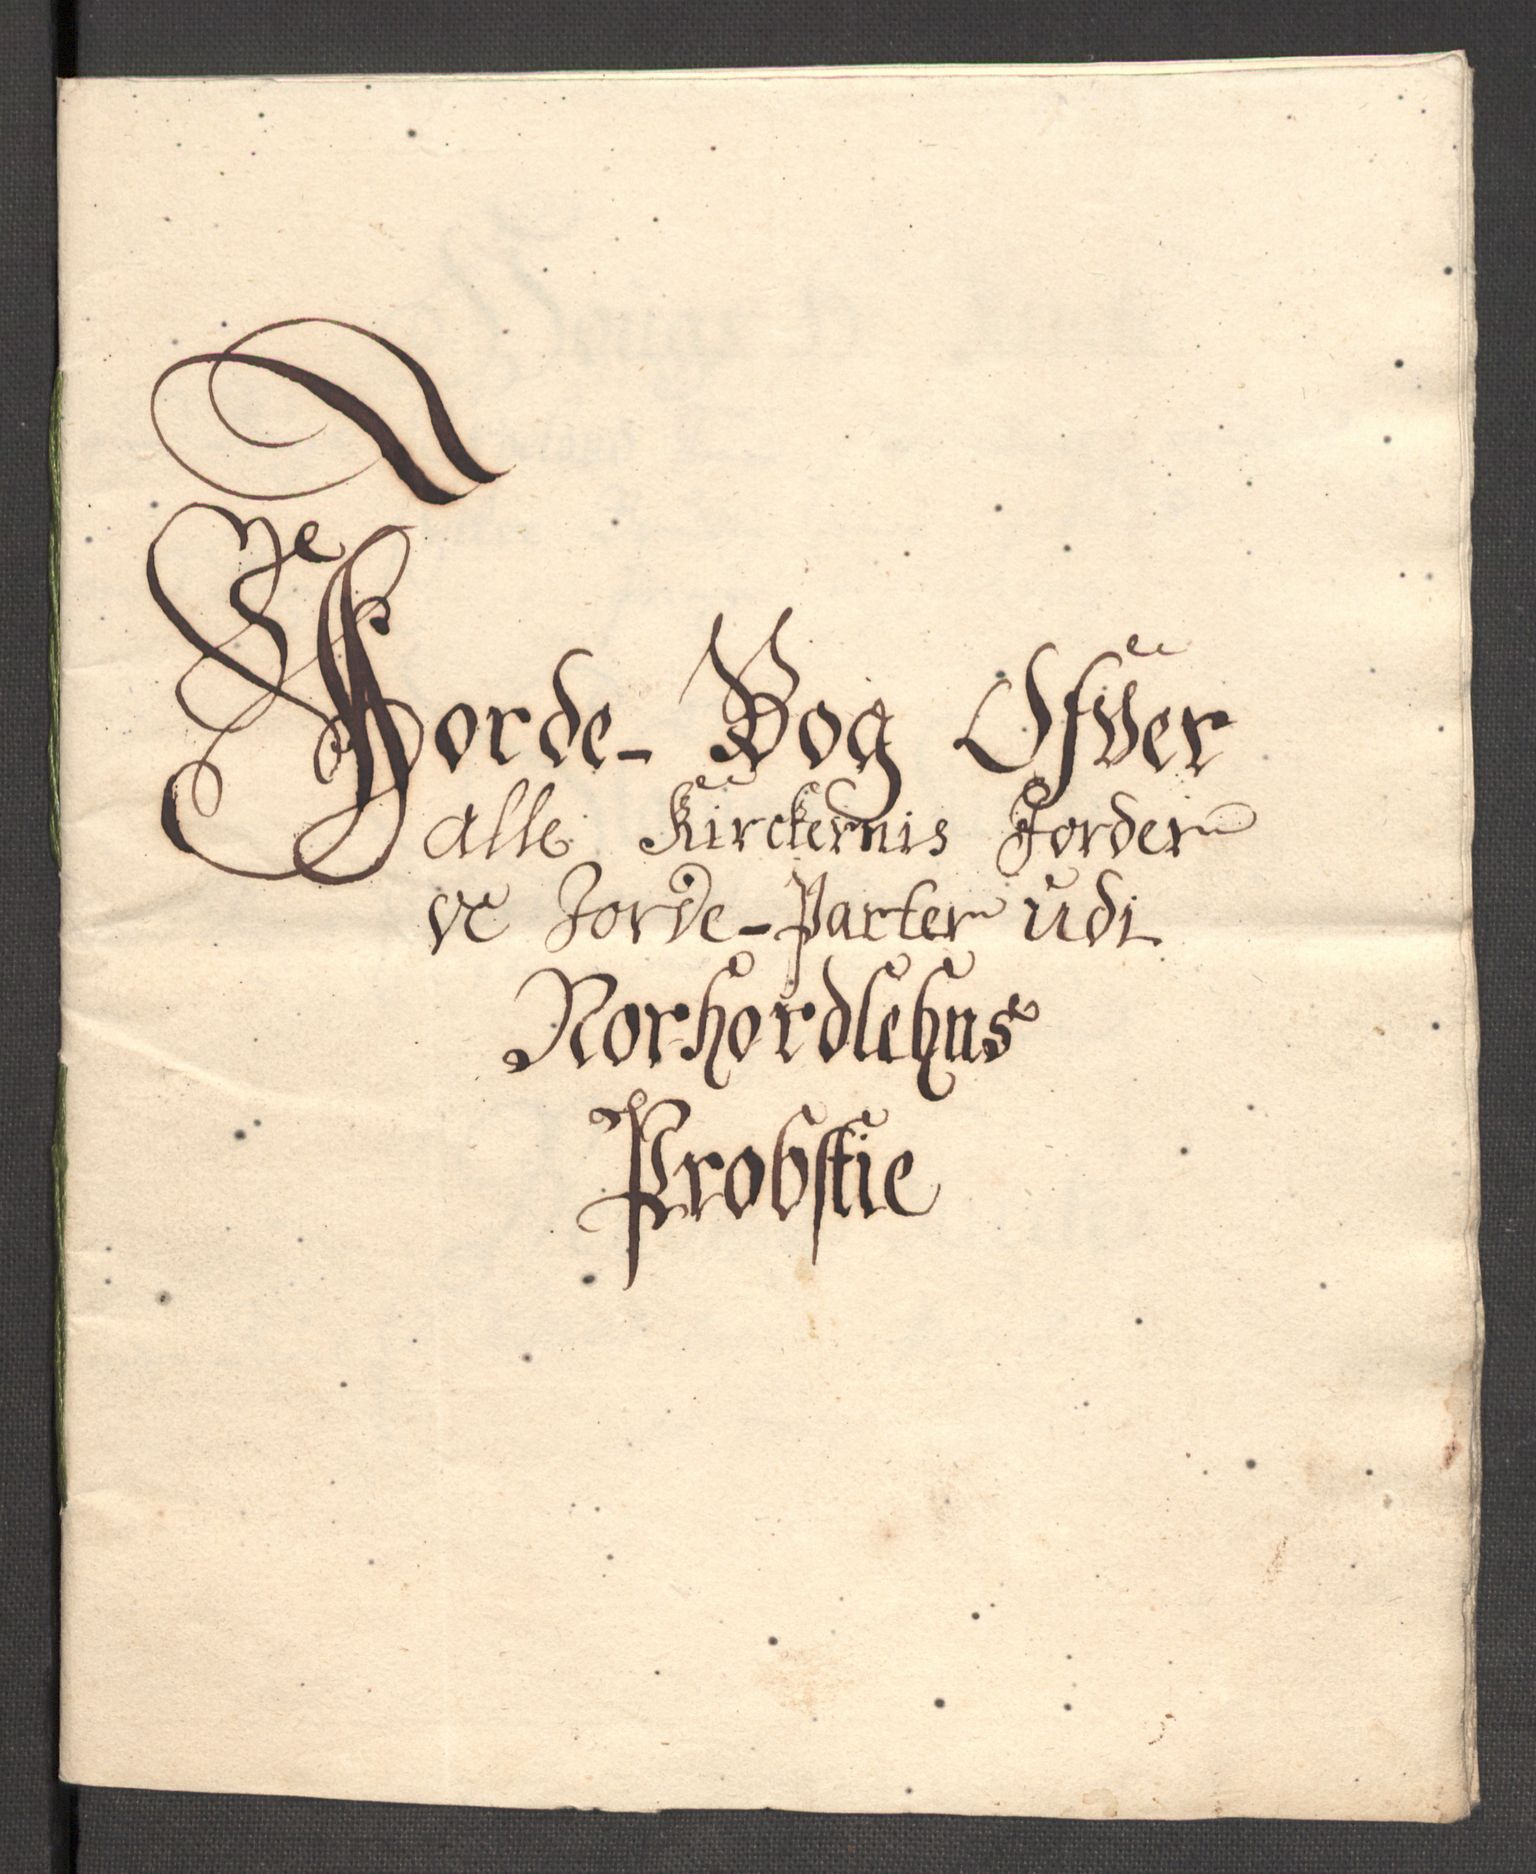 Jorde-Bog Ofver
alle Kirckernis Jorder
oc Jorde-Parter udi
Norhordlehns
Probstie